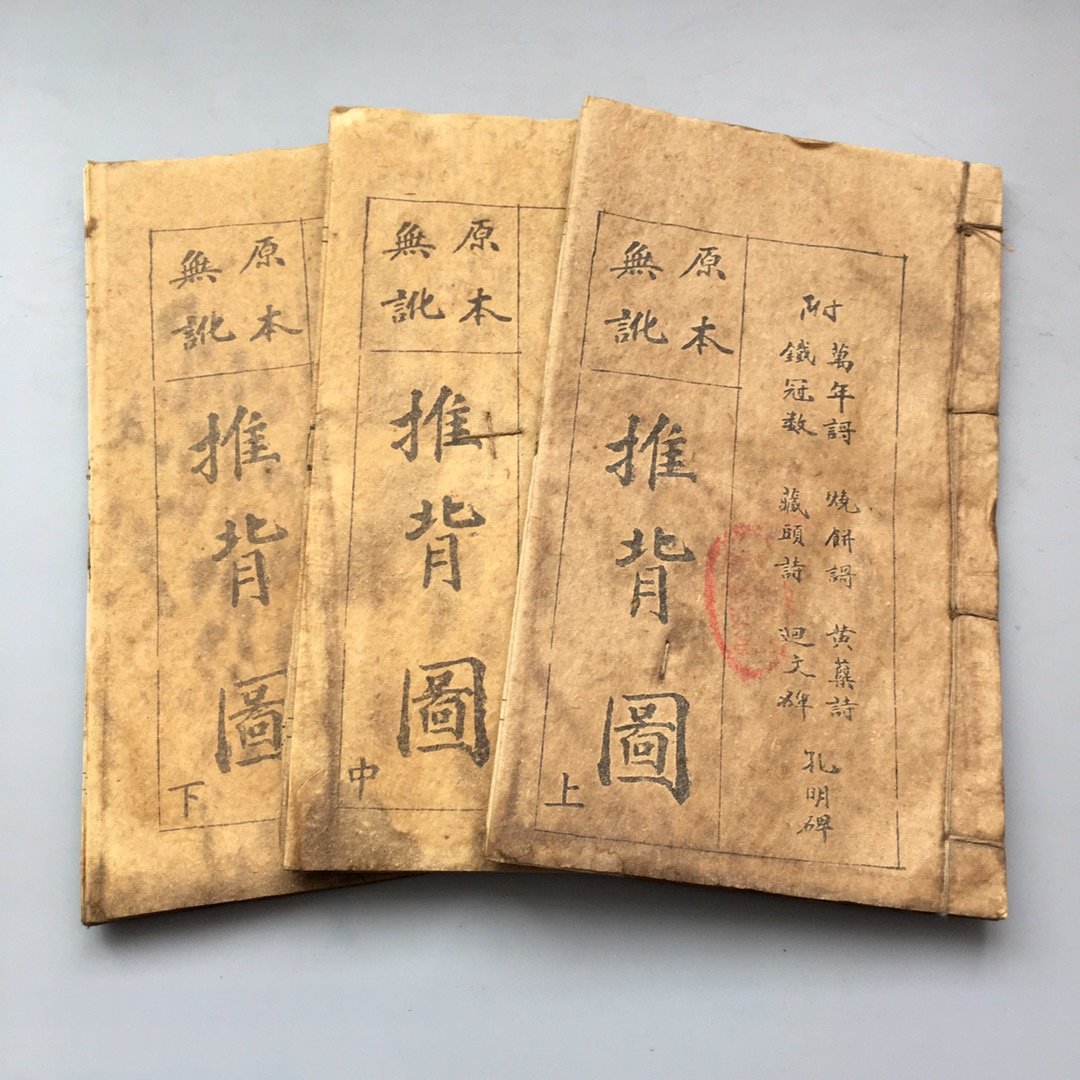 附
萬年謌 燒餅謌 黄蘗詩 孔明碑
鐵冠数 藏頭詩 迴文碑
原本
無訛
推背圖
上
原本
無訛
推背圖
中
原本
無訛
推背圖
下